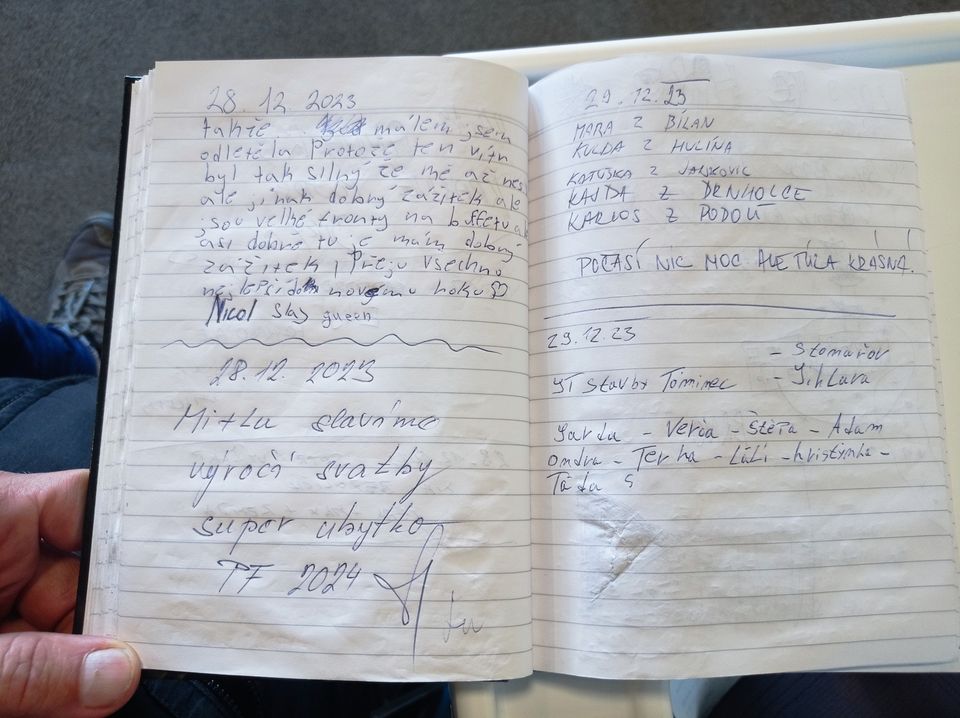 28. 12. 2023
takže málem jsem
odletěla Protože ten vítr
byl tak silný že mě až nes
ale jinak dobrý zážitek ale
jsou velké fronty na buffetu al
asi dobře tu je mám dobrý
zážitek, Přeju všechno
nejlepší do novému roku
Nicol Slay queen
28.12. 2023
slavíme
výročí svatby
super ubytko
PF 2024
29.12.23
MARA Z BÍLAN
KULDA Z HULÍNA
KATUŠKA Z
KAJDA Z DRNHOLCE
KARLOS Z PODOLÍ
POČASÍ NIC MOC ALE TÚRA KRÁSNÁ!
29.12.23
- Stonařov
Stavby Tominec - Jihlava
Jarda - Verča - Štěpa - Adam
Ondra - Terka - Lůli - kristýnka -
Táda